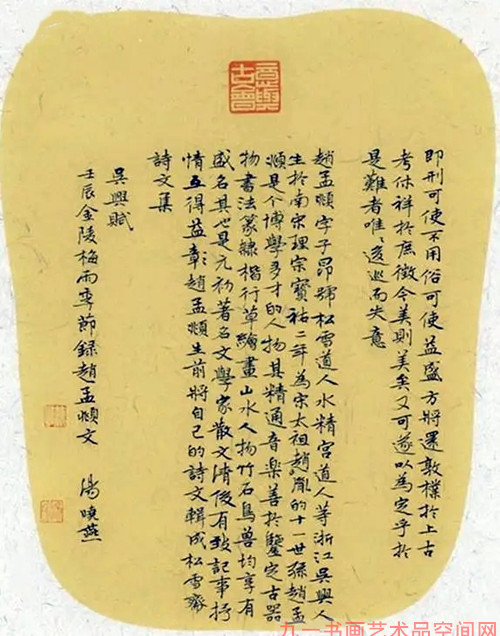 意與古會
即刑可使不用俗可使益盛方將還敦樸於上古
考休祥於庶徵今美則美矣又可遂以為定乎於
是難者唯〻逡巡而失意
趙孟頫字子昂號松雪道人水精宮道人等浙江吳興人
生於南宋理宗寶祐二年為宋太祖趙匡胤的十一世孫趙孟
頫是个博學多才的人物其精通音樂善於鑒定古器
物書法篆隸楷行草繪畫山水人物竹石鳥獸均享有
盛名其也是元初著名文學家散文清後有致記事抒
情互得益彰趙孟頫生前將自己的詩文輯成松雪齋
詩文集
吳興賦
壬辰金陵梅雨季節錄趙孟頫文 湯曉燕
九一书画艺术品空间网